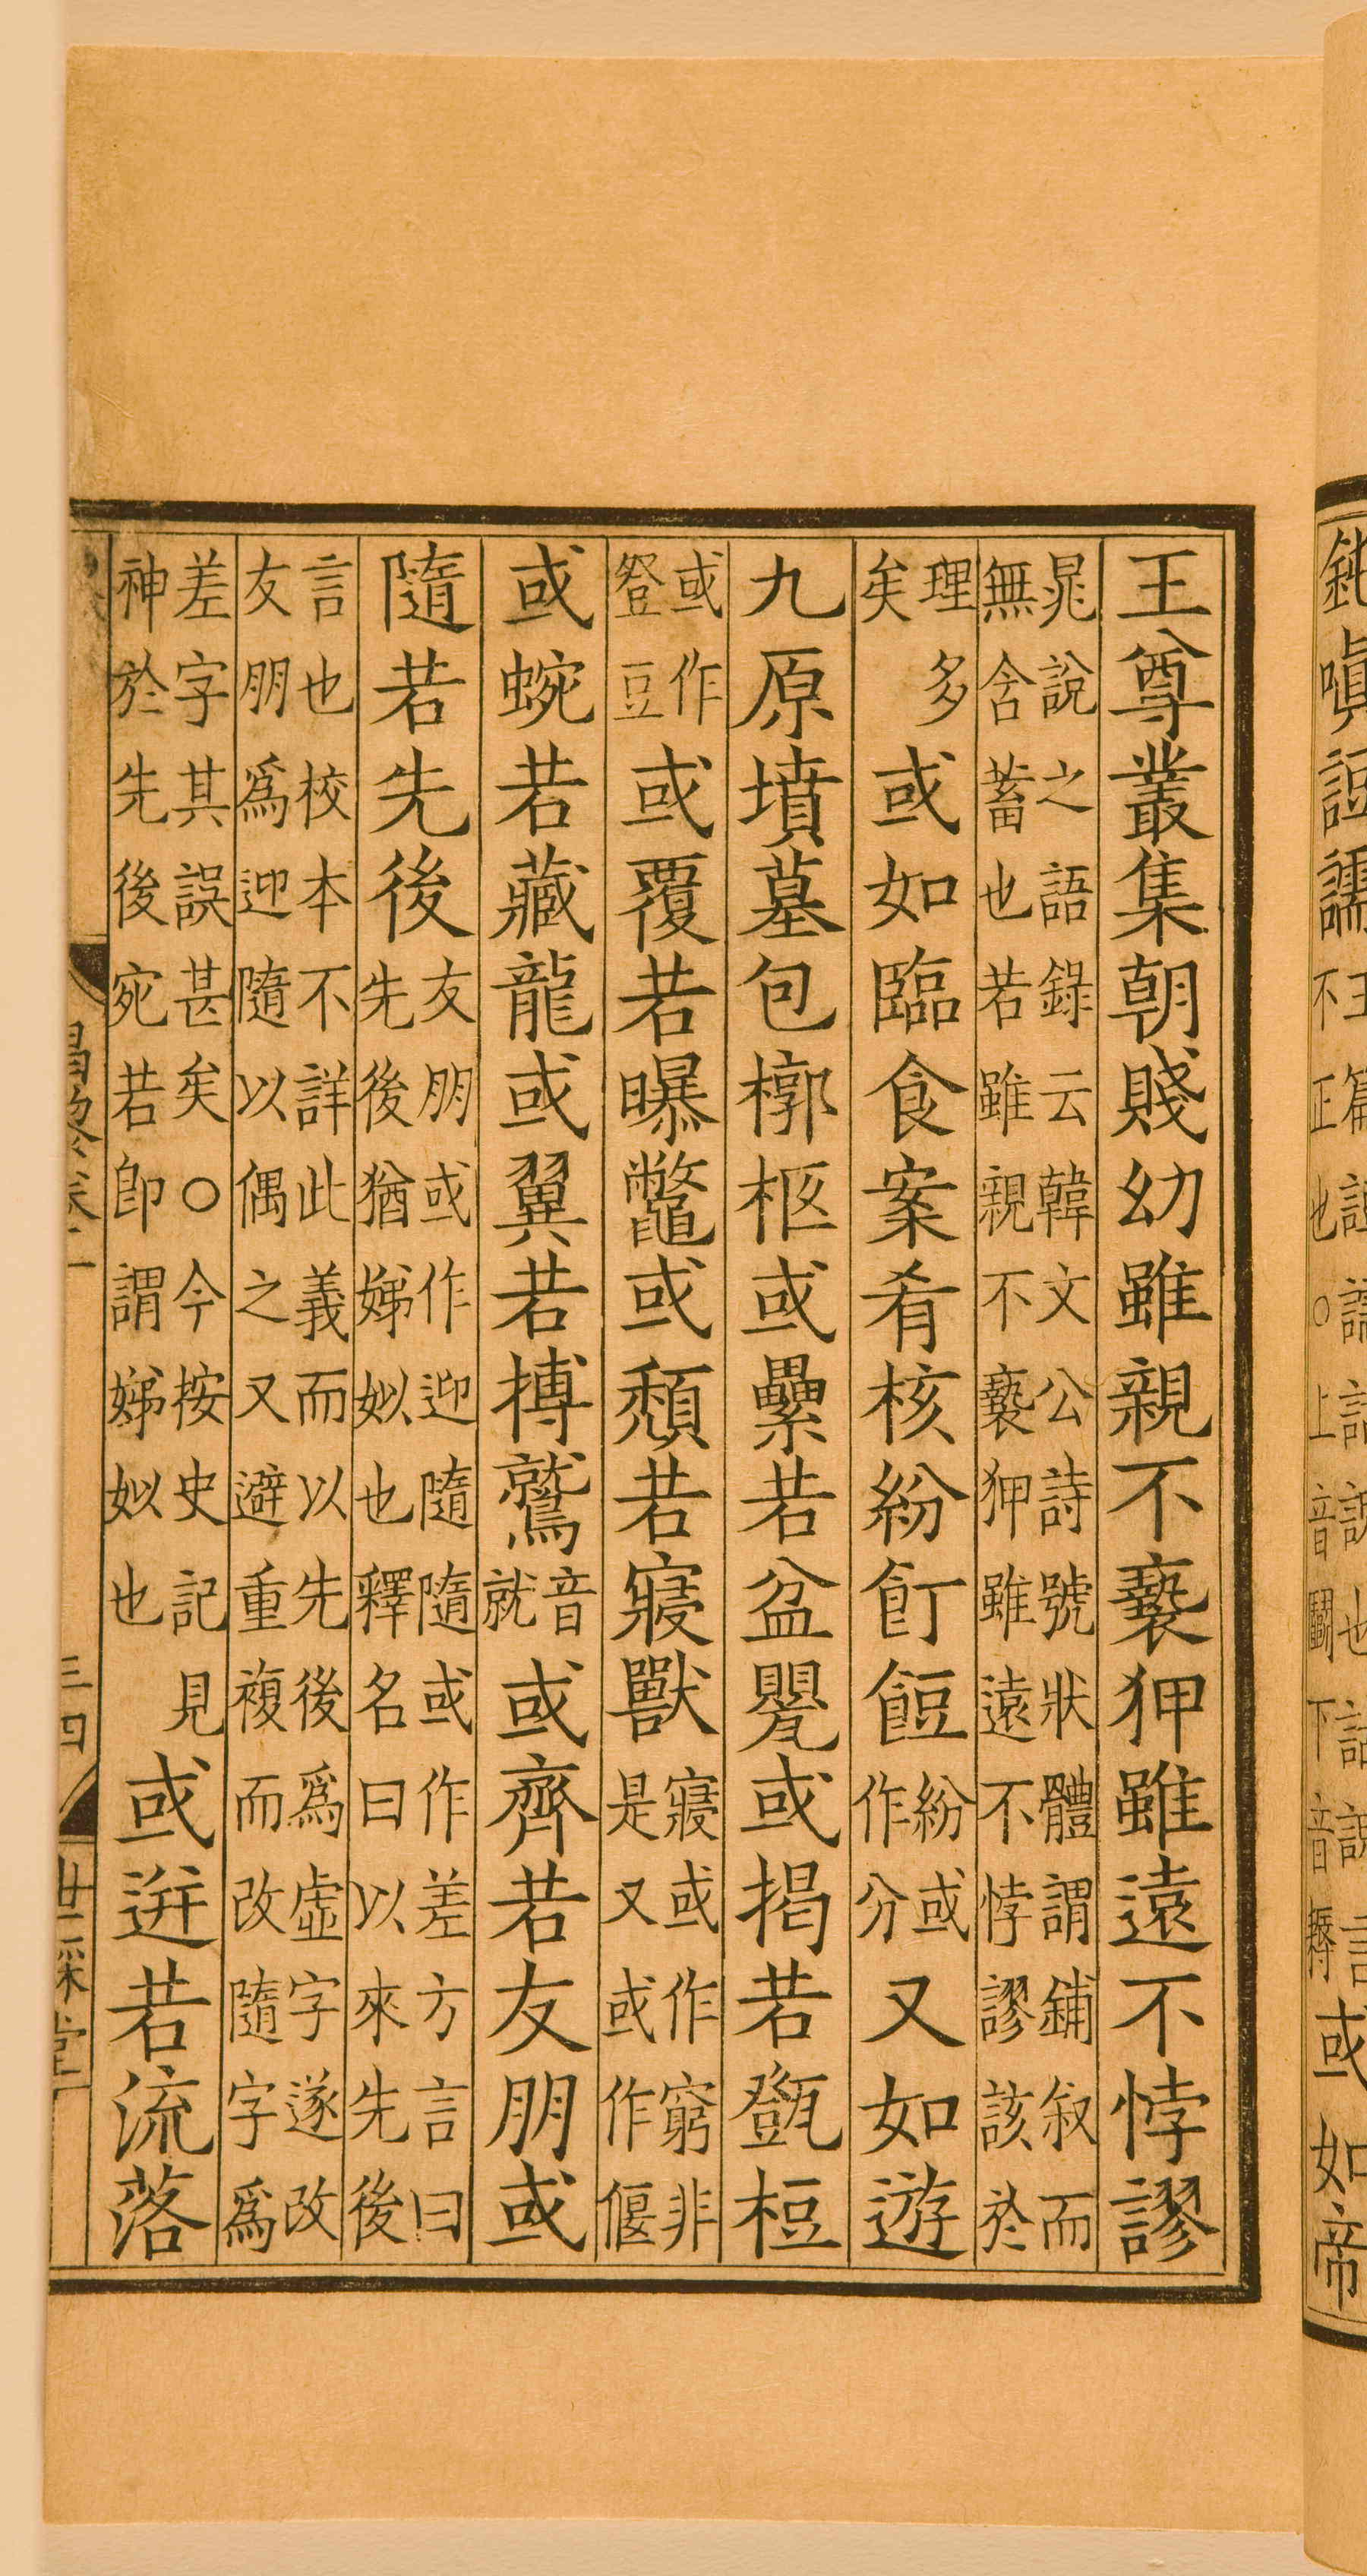 王尊叢集朝賤幼雖親不褻狎雖遠不悖謬
晁說之語錄云韓文公詩號狀體謂鋪叙而
無含蓄也若雖親不褻狎雖遠不悖謬該於
理多
矣
或如臨食案肴核紛飣餖
紛或
作分
又如遊
九原墳墓包槨柩或纍若盆甖或揭若㽅梪
或作
豋豆
或覆若曝鼈或頹若寢獸
寢或作窮非
是又或作偃
或蜿若藏龍或翼若搏鷲
音
就
或齊若友朋或
隨若先後
友朋或作迎隨隨或作差方言曰
先後猶娣姒也釋名曰以來先後
言也校本不詳此義而以先後爲虛字遂改
友朋爲迎隨以偶之又避重複而改隨字爲
差字其誤甚矣○今按史記見
神於先後宛若卽謂娣姒也
或逬若流落
昌黎卷二
三四
廿二
堂
或如帝